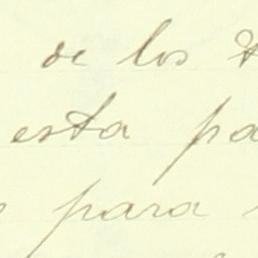 de los
esta pa
para